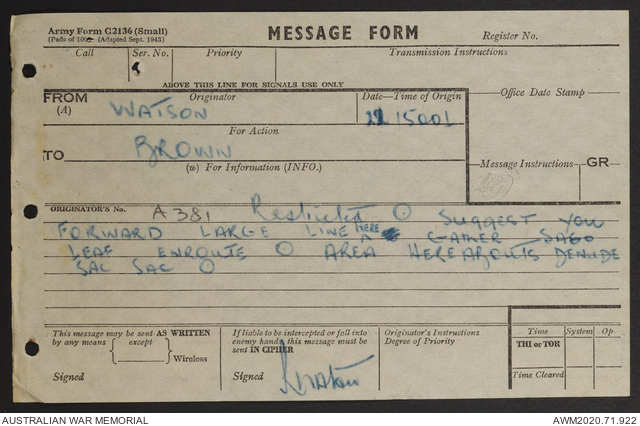 Army Form C2136 (Small)
(Pads of 100. (Adapted Sept. 1943)
MESSAGE FORM
Register No.
Call
Ser. No.
Priority
Transmission Instructions
ABOVE THIS LINE FOR SIGNALS USE ONLY
FROM
(A)
Originator
WATSON
Date—Time of Origin
221500L
Office Date Stamp
For Action
TO
BROWN
(W) For Information (INFO.)
Message Instructions
GR
ORIGINATOR'S No.
A381 Restricted O SUGGEST YOU
FORWARD LARGE LINE HERE GATHER SAGO
LEAF ENROUTE O AREA HEREABOUTS DENUDE
SAC SAC O
This message may be sent AS WRITTEN
by any means
except
Wireless
Signed
If liable to be intercepted or fall into
enemy hands, this message must be
sent IN CIPHER
Signed
Originator's Instructions
Degree of Priority
Time
System
Op
THI or TOR
Time Cleared
AUSTRALIAN WAR MEMORIAL
AWM2020.71.922